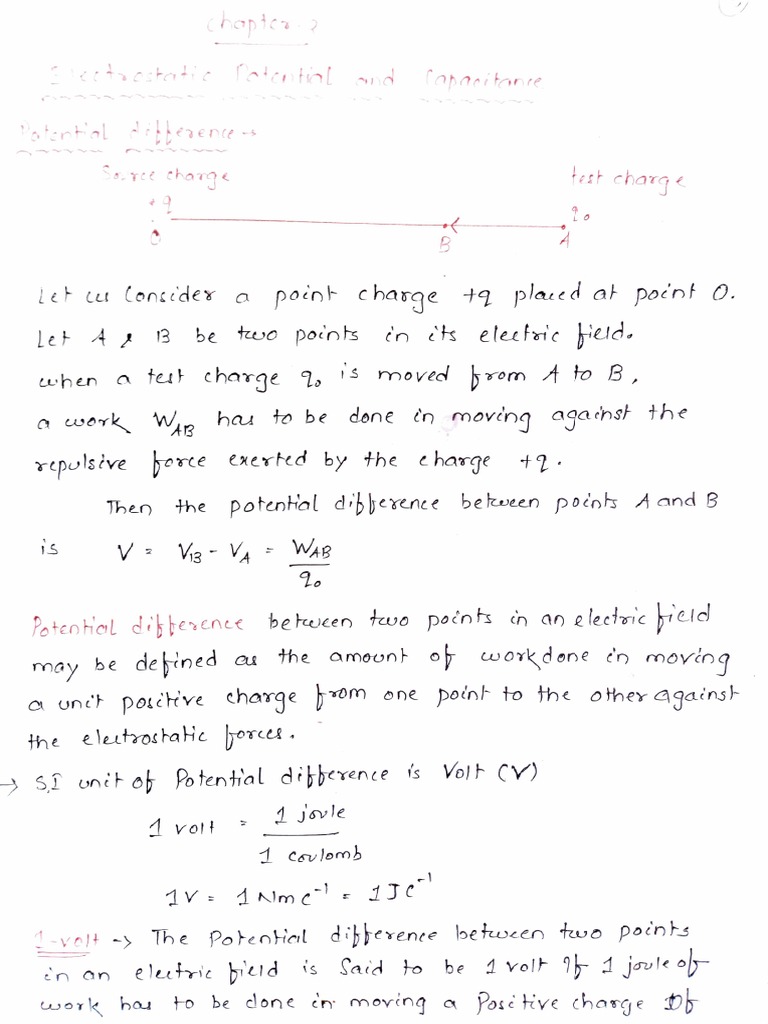 Chapter-2
Electrostatic Potential and Capacitance
Potential difference →
Source charge
test charge
+q
q₀
O
B
A
Let us Consider a point charge +q placed at point O.
Let A & B be two points in its electric field.
when a test charge q₀ is moved from A to B,
a work W_AB has to be done in moving against the
repulsive force exerted by the charge +q.
Then the potential difference between points A and B
is V = V_B - V_A = W_AB / q₀
Potential difference between two points in an electric field
may be defined as the amount of workdone in moving
a unit positive charge from one point to the other against
the electrostatic forces.
→ S.I unit of Potential difference is Volt (V)
1 volt = 1 joule / 1 coulomb
1V = 1 Nm C⁻¹ = 1 J C⁻¹
1-volt → The Potential difference between two points
in an electric field is Said to be 1 volt If 1 joule of
work has to be done in moving a Positive charge Of